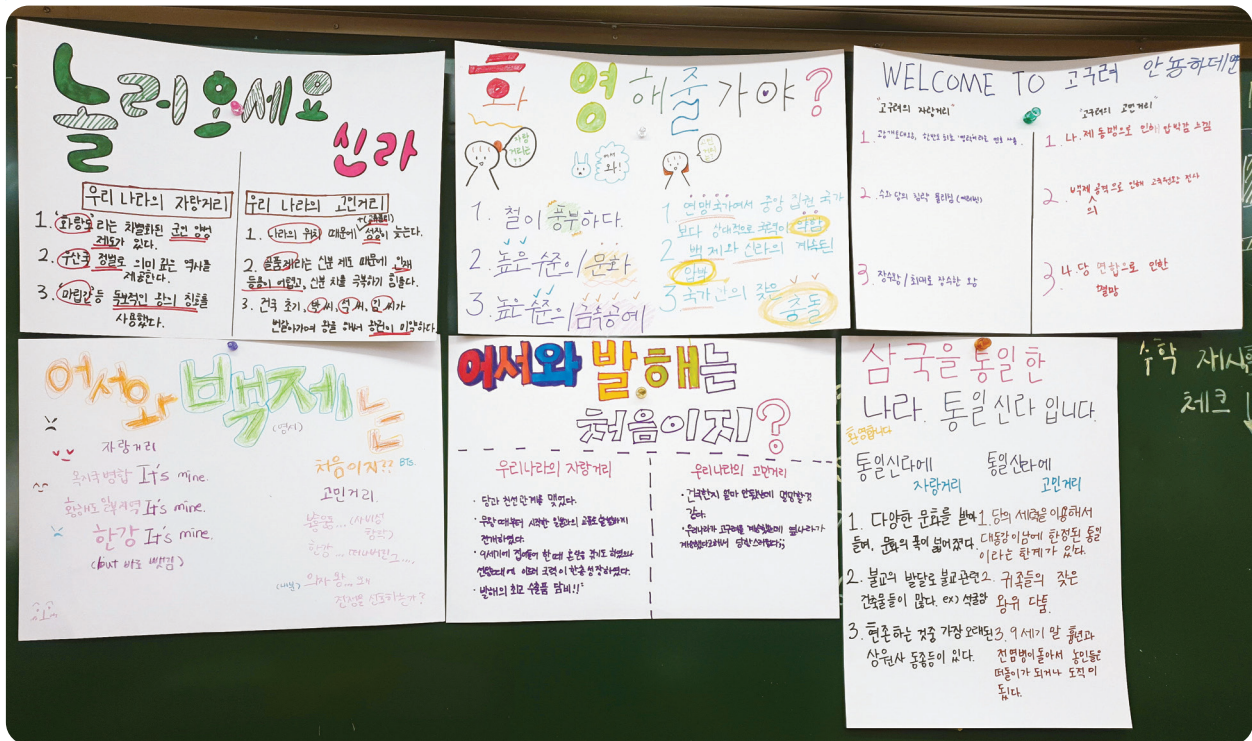 놀러오세요
신라
우리 나라의 자랑거리
1. "화랑도"라는 차별화된 군인 양성
제도가 있다.
2. 우산국 정벌로 의미 깊은 역사를
제공한다.
3. "마립간"등 독보적인 왕의 칭호를
사용했다.
우리 나라의 고민거리
1. 나라의 위치 때문에 성장이 늦는다.
2. 골품제라는 신분 제도 때문에 인재
등용이 어렵고, 신분 차를 극복하기 힘들다.
3. 건국 초기, 박씨, 석씨, 김씨가
번갈아가며 왕을 해서 왕권이 미약하다.
환영해줄가야?
자랑
거리는
??
어서
와!
1. 철이 풍부하다.
2. 높은 수준의 문화
3. 높은 수준의 금속공예
1 연맹국가여서 중앙 집권 국가
보다 상대적으로 국력이 약함
2 백제와 신라의 계속된
압박
3 국가간의 잦은
충돌
WELCOME TO 고구려 안뇽하데연
"고구려의 자랑거리"
1. 광개토대왕,
2. 수와 당의 침략 물리침
3. 장수왕 / 최대로 장수한 왕
"고구려의 고민거리"
1. 나.제 동맹으로 인해 압박감 느낌
2. 백제 공격으로 인해 고국원왕 전사
의
3. 나.당 연합으로 인한
멸망
어서와 백제는
(명사)
처음이지?? BTS.
자랑거리
옥저국 병합 It's mine.
황해도 일부지역 It's mine.
한강 It's mine.
(but 바로 뺏김)
고민거리.
한강...
의자 왕...
어서와 발해는
처음이지?
우리나라의 자랑거리
• 당과 친선관계를 맺었다.
• 무왕 때부터 시작한 일본과의 교류도 활발하게
전개하였다.
• 9세기에 접어들어 한 때 혼란을 겪기도 하였으나
선왕때에 이르러 국력이 한층 성장하였다.
• 발해의 최고 수출품 담비!!
우리나라의 고민거리
• 건국한지 얼마 안됐는데 멸망할것
같다.
• 우리나라가 고구려를 계승했는데
삼국을 통일한
나라. 통일신라 입니다.
환영합니다
통일신라에
자랑거리
1. 다양한 문화를 받아
들여, 문화의 폭이 넓어졌다.
2. 불교의 발달로 불교관련
건축물들이 많다. ex) 석굴암
3. 현존하는 것중 가장 오래된
상원사 동종등이 있다.
통일신라에
고민거리
1. 당의 세력을 이용해서
대동강 이남에 한정된 통일
이라는 한계가 있다.
2. 귀족들의 잦은
왕위 다툼.
3. 9세기 말 흉년과
전염병이 돌아서 농민들은
떠돌이가 되거나 도적이
됬다.
수학 재시험
체크 ↓